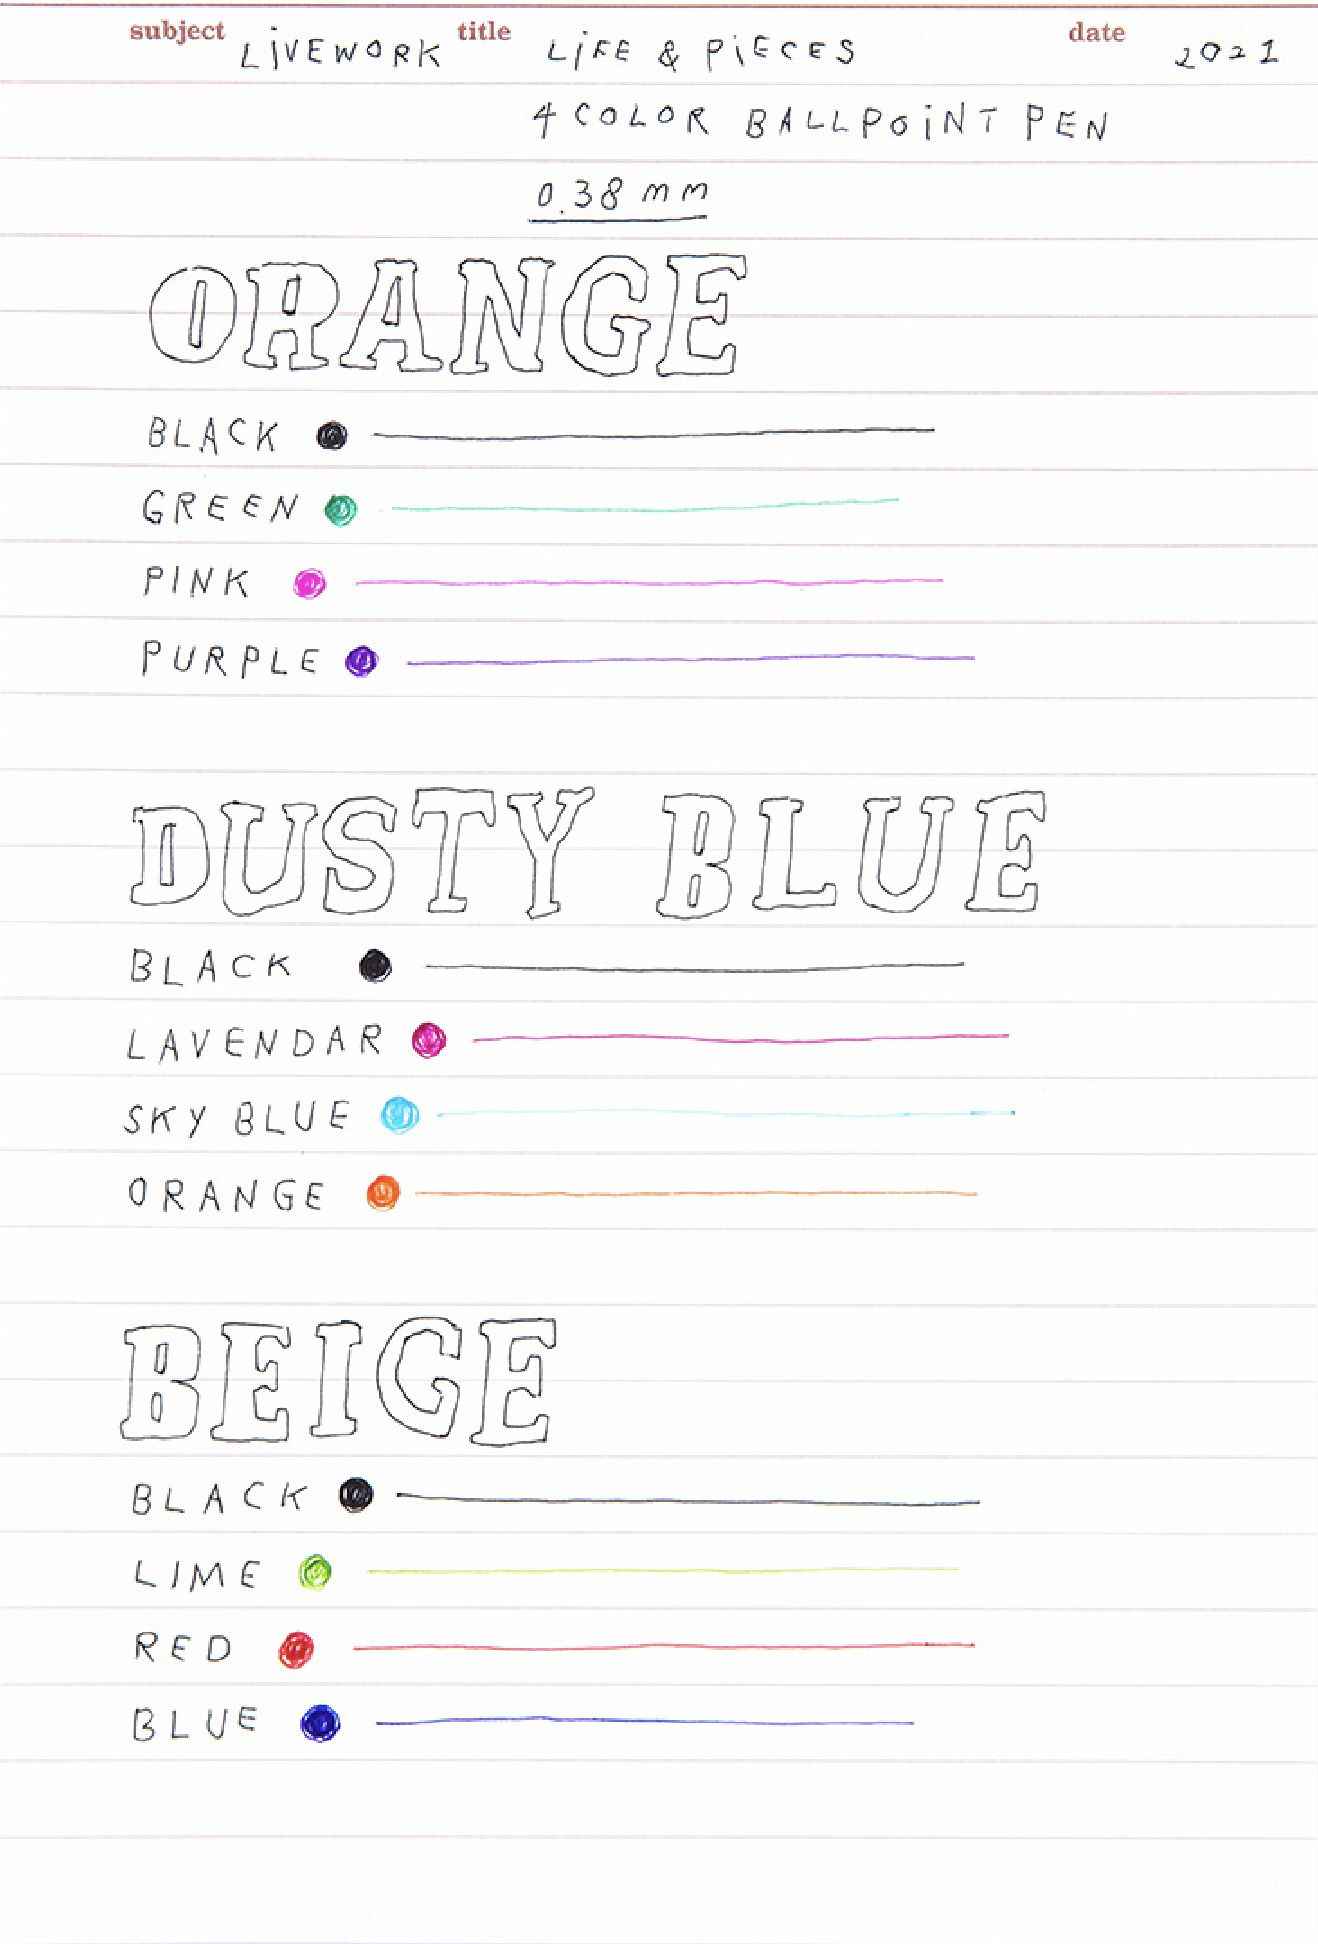 subject LiVEWORK title LiFE & PiECES date 2021
4 COLOR BALLPOiNT PEN
0.38 mm
ORANGE
BLACK
GREEN
PINK
PURPLE
DUSTY BLUE
BLACK
LAVENDAR
SKY BLUE
ORANGE
BEIGE
BLACK
LIME
RED
BLUE